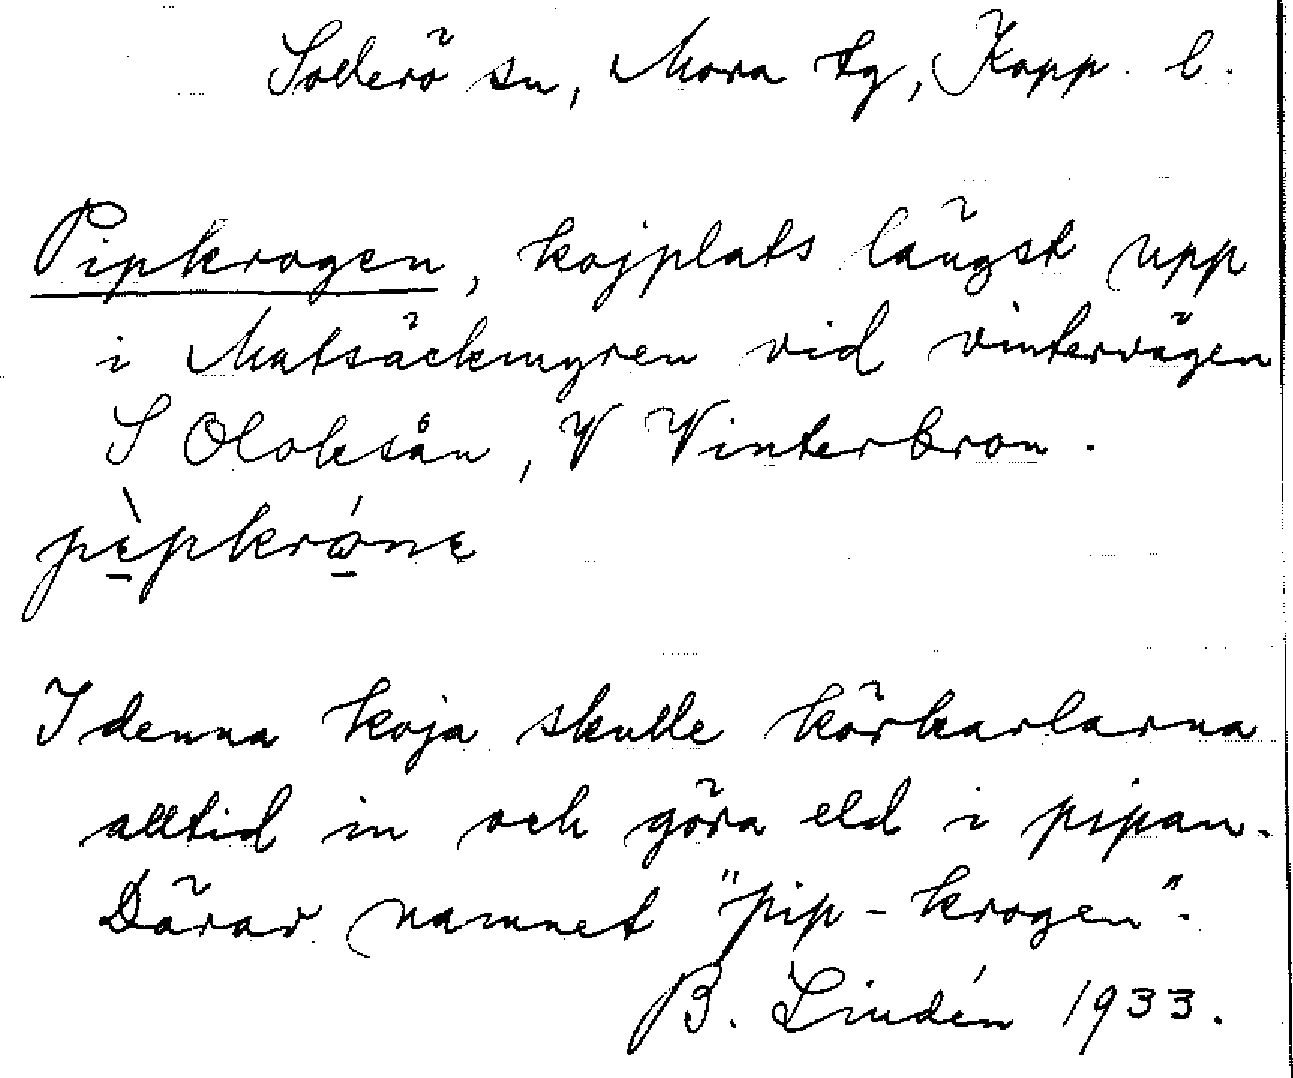 Soderö sn, Mora tg, Kopp. l.
Pipkrogen, kojplats längst upp
i Matsäckmyren vid vintervägen
S Oloksån, V Vinterbron.
pìpkróne
I denna koja skulle körkarlarna
alltid in och göra eld i pipan.
Därav namnet "pip-krogen".
B. Lindén 1933.